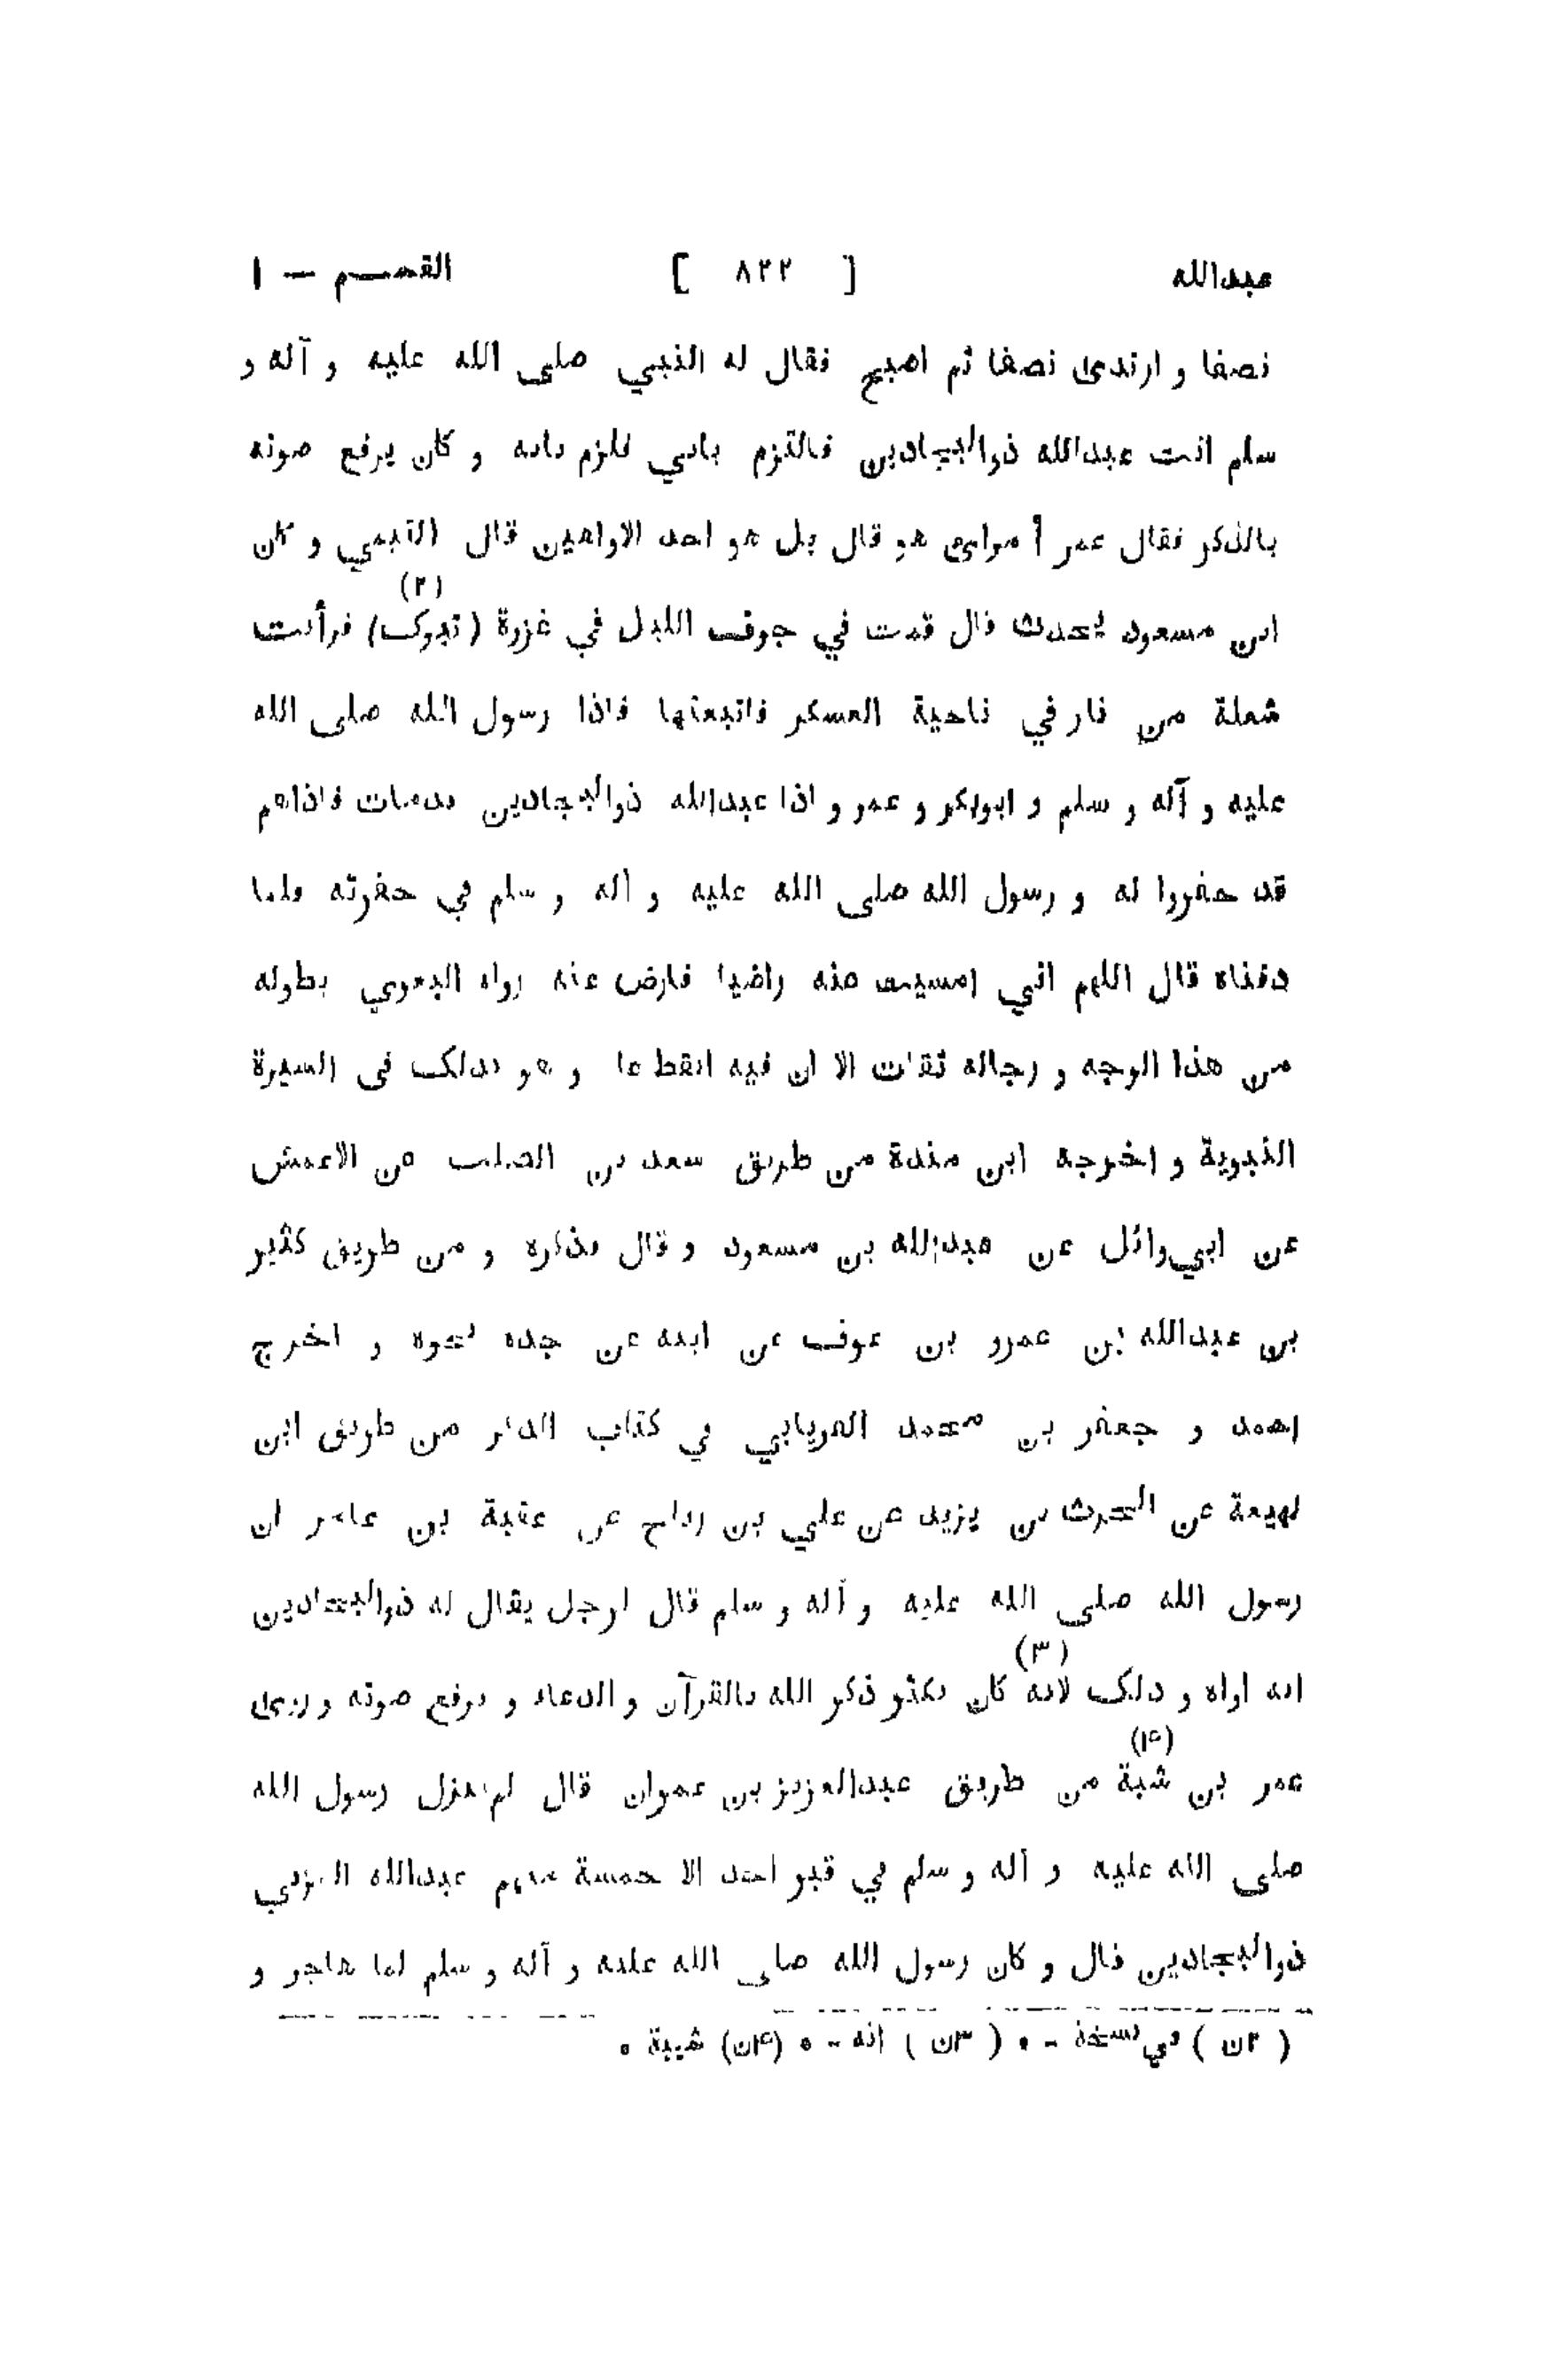 عبدالله [ ٨٢٢ ] القسم — ١
نصفا و ارتدى نصفا ثم اصبح فقال له النبي صلى الله عليه و آله و
سلم انت عبدالله ذوالبجادين فالتزم بابي فلزم بابه و كان يرفع صوته
بالذكر فقال عمر أ مرائ هو قال بل هو احد الاواهين قال التيمي و كان
(٢)
ابن مسعود يحدث قال قمت في جوف الليل في غزوة (تبوك) فرأيت
شعلة من نار في ناحية العسكر فاتبعتها فاذا رسول الله صلى الله
عليه و آله و سلم و ابوبكر و عمر و اذا عبدالله ذوالبجادين قدمات فاذاهم
قد حفروا له و رسول الله صلى الله عليه و آله و سلم في حفرته فلما
دفناه قال اللهم اني امسيت عنه راضيا فارض عنه رواه البغوي بطوله
من هذا الوجه و رجاله ثقات الا ان فيه انقطاعا و هو كذلك فى السيرة
النبوية و اخرجه ابن مندة من طريق سعد بن الصلت عن الاعمش
عن ابي‌وائل عن عبدالله بن مسعود و قال فذكره و من طريق كثير
بن عبدالله بن عمرو بن عوف عن ابيه عن جده نحوه و اخرج
احمد و جعفر بن محمد الفريابي في كتاب الذكر من طريق ابن
لهيعة عن الحرث بن يزيد عن علي بن رباح عن عقبة بن عامر ان
رسول الله صلى الله عليه و آله و سلم قال لرجل يقال له ذوالبجادين
(٣)
انه اواه و ذلك لانه كان يكثر ذكر الله بالقرآن و الدعاء و يرفع صوته و روى
(۴)
عمر بن شبة من طريق عبدالعزيز بن عمران قال لم ينزل رسول الله
صلى الله عليه و آله و سلم في قبر احد الا خمسة منهم عبدالله المزني
ذوالبجادين قال و كان رسول الله صلى الله عليه و آله و سلم لما هاجر و
( ٢ن ) في نسخة - ٠ ( ٣ن ) انه - ٠ (۴ن) شيبة ٠